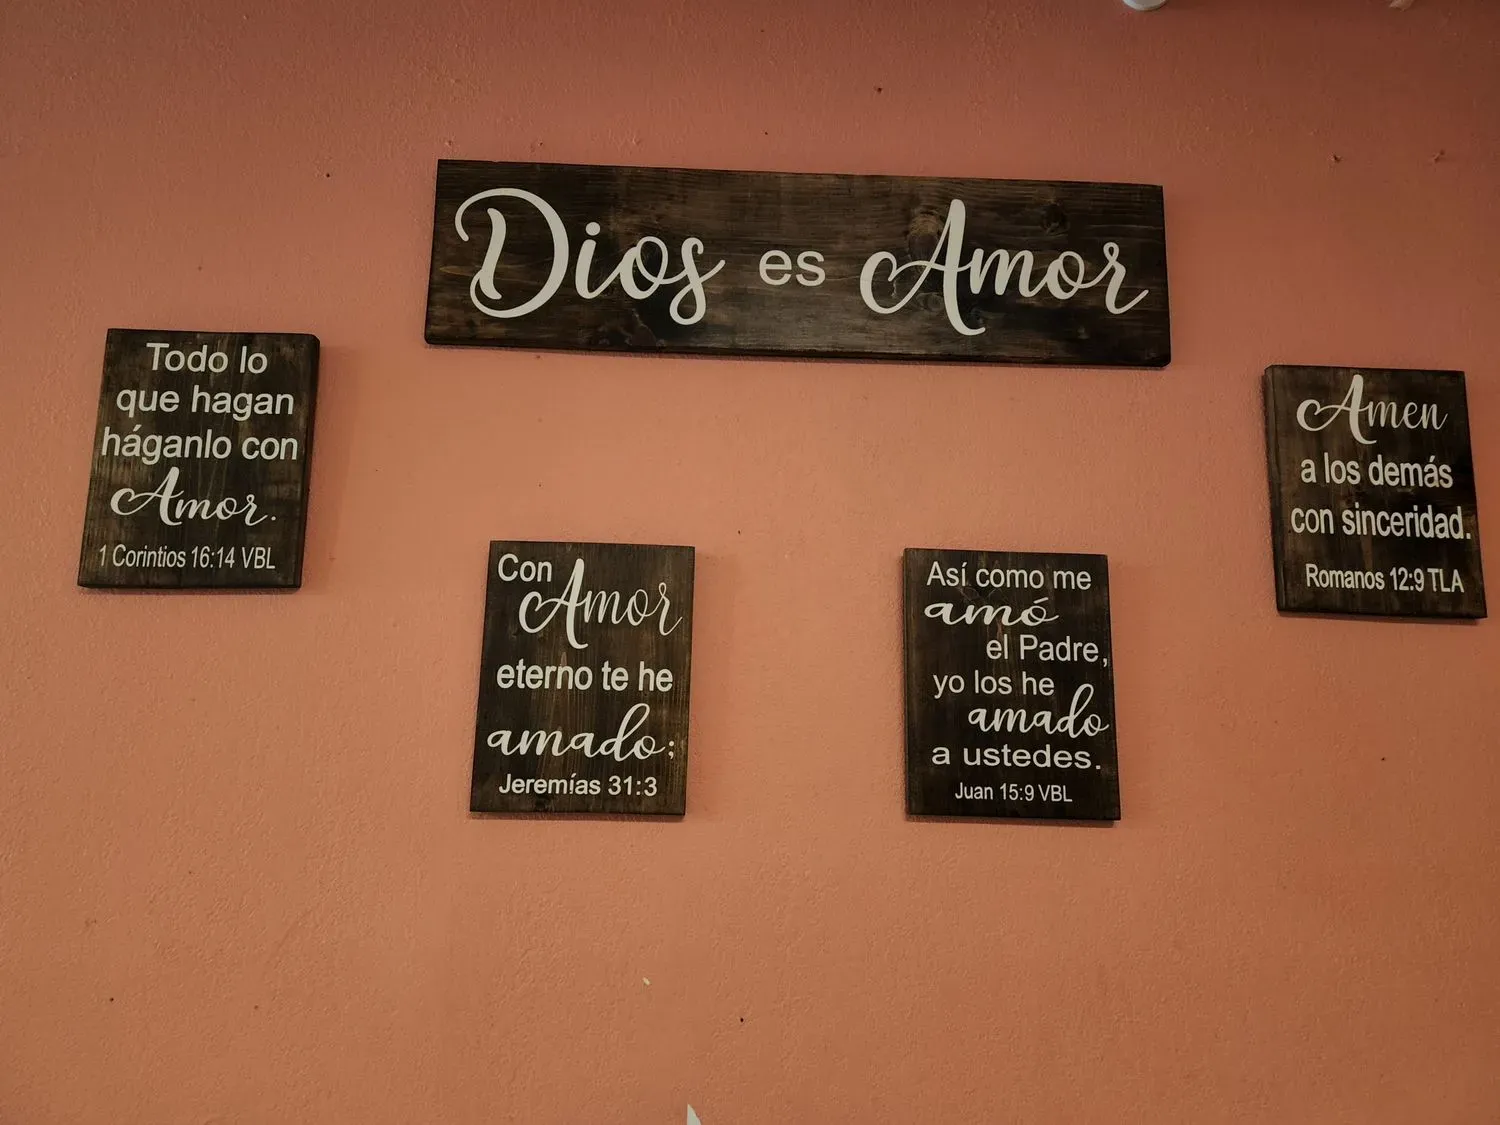 Dios es Amor
Todo lo
que hagan
háganlo con
Amor.
1 Corintios 16:14 VBL
Con
Amor
eterno te he
amado;
Jeremías 31:3
Así como me
amó
el Padre,
yo los he
amado
a ustedes.
Juan 15:9 VBL
Amen
a los demás
con sinceridad.
Romanos 12:9 TLA